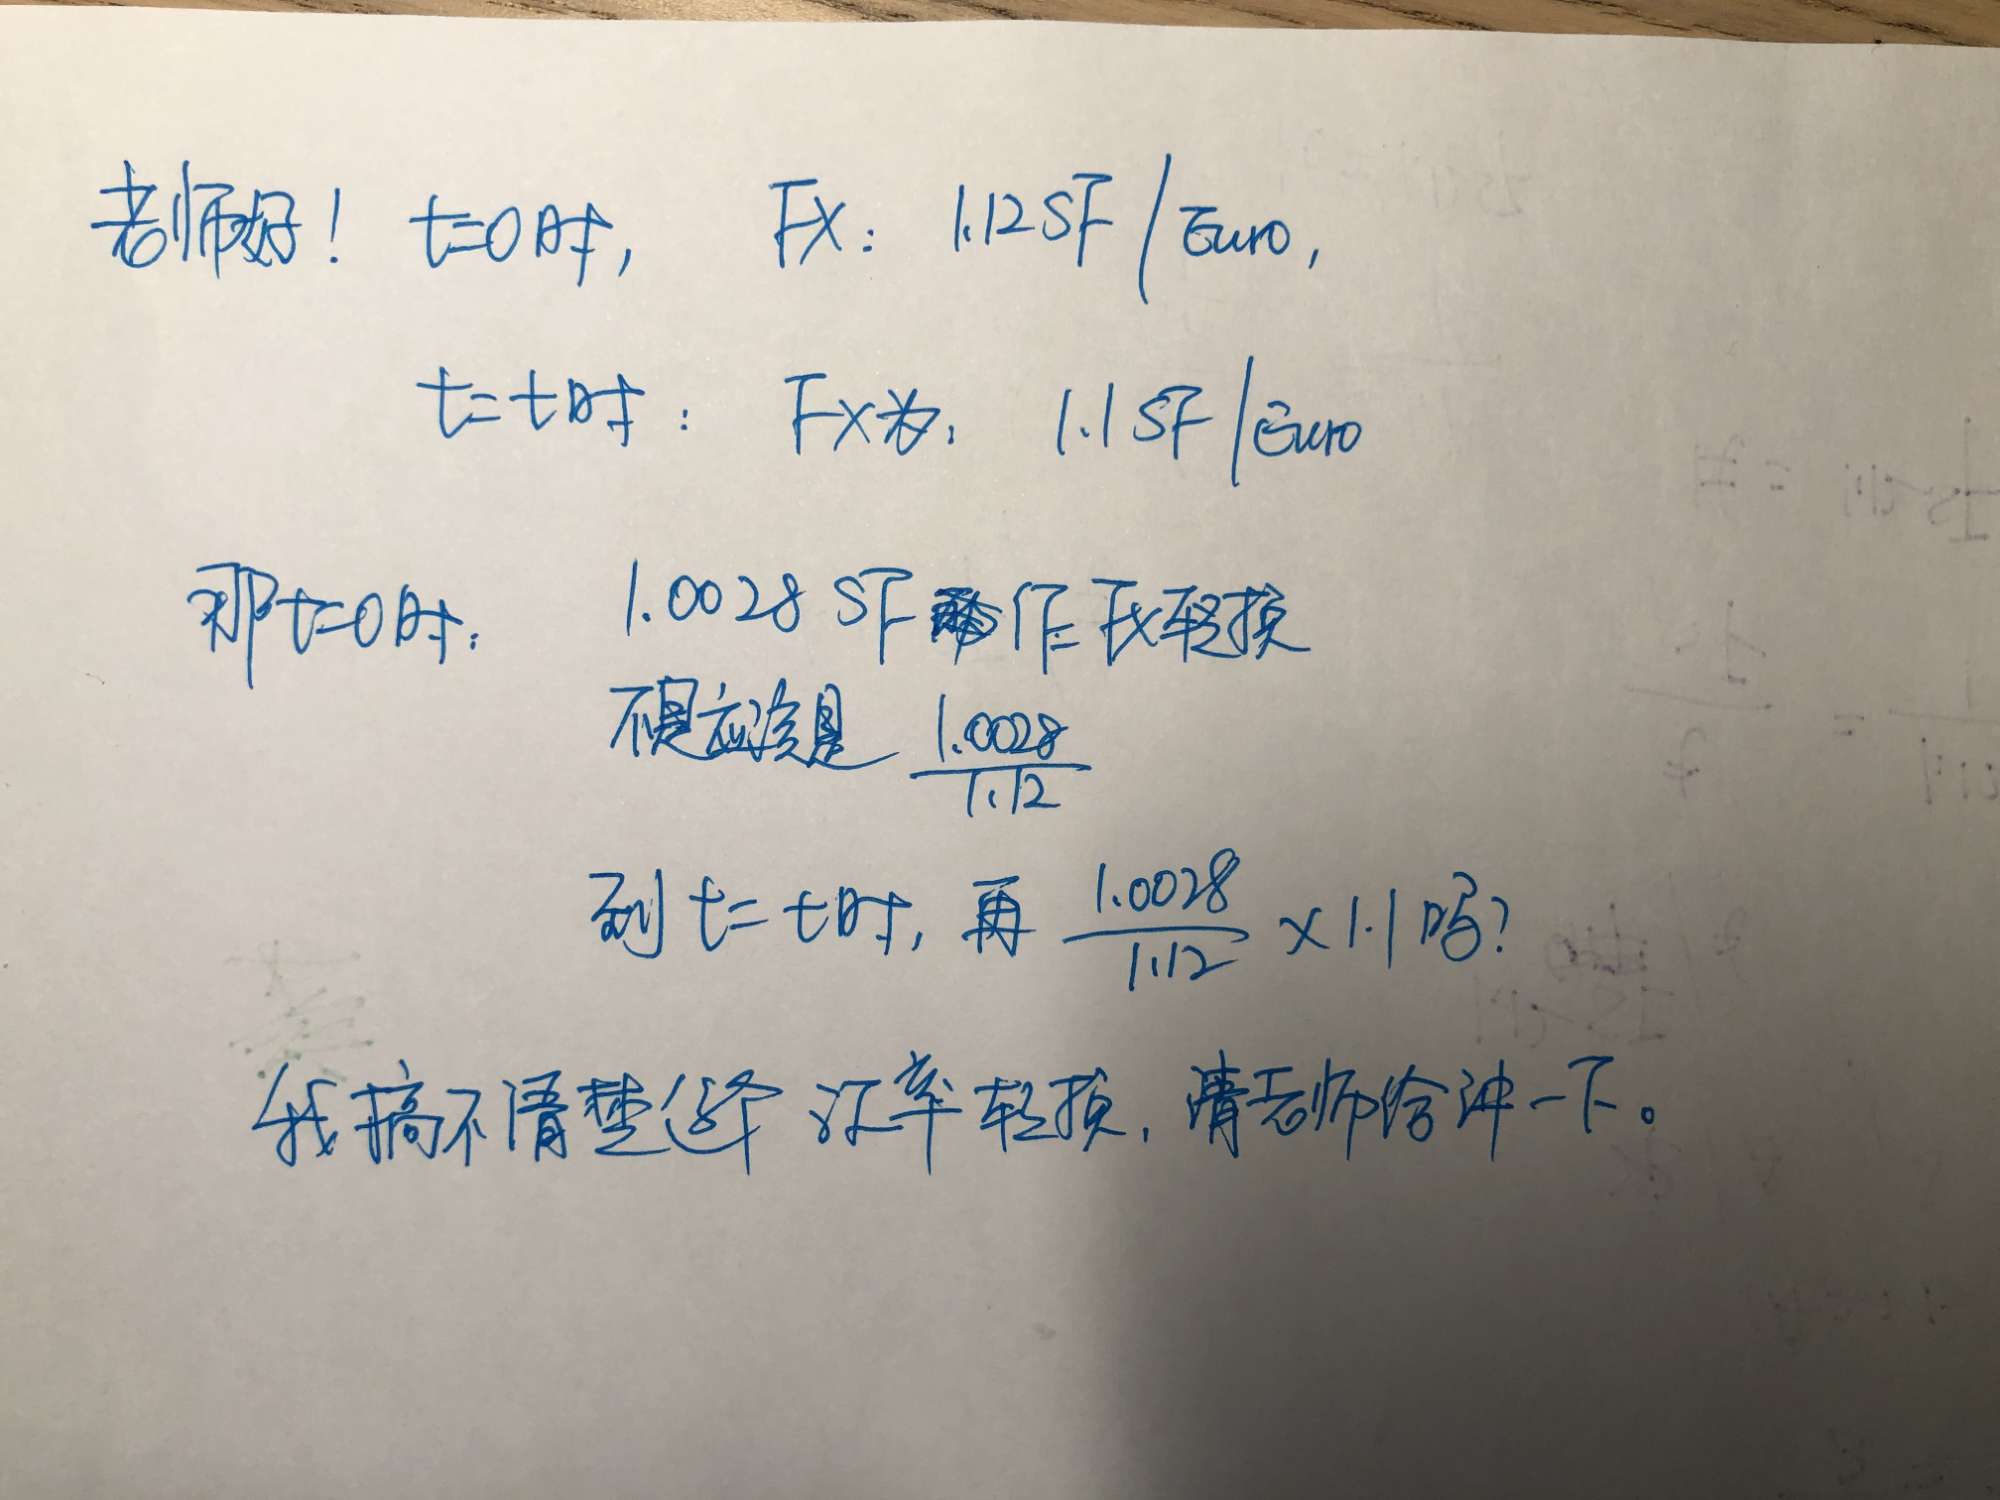 老师好! t=0时, FX: 1.12SF/Euro,
t=t时: FX为, 1.1SF/Euro
那t=0时: 1.0028 SF 作FX转换
不是应该是 1.0028/1.12
到t=t时, 再 1.0028/1.12 ×1.1吗?
我搞不清楚这个汇率转换, 请老师给讲一下。